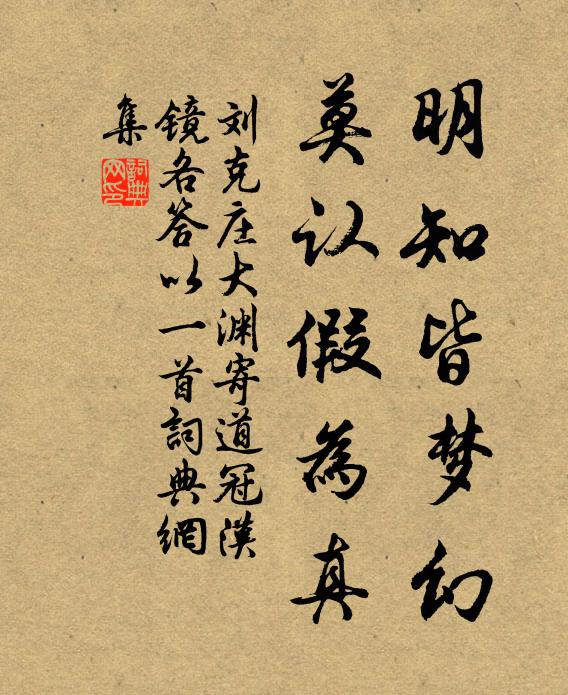 明知皆梦幻
莫认假為真
刘克庄大渊寄道冠漢
镜各答以一首詞典網
集
詞典
网印